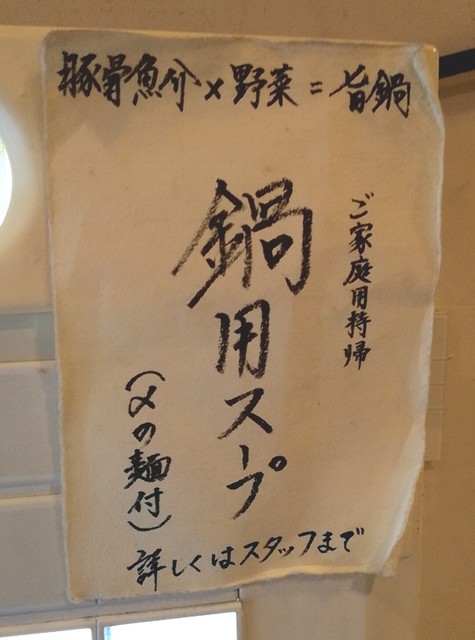 豚骨魚介×野菜=旨鍋
ご家庭用持帰
鍋用スープ
(〆の麺付)
詳しくはスタッフまで